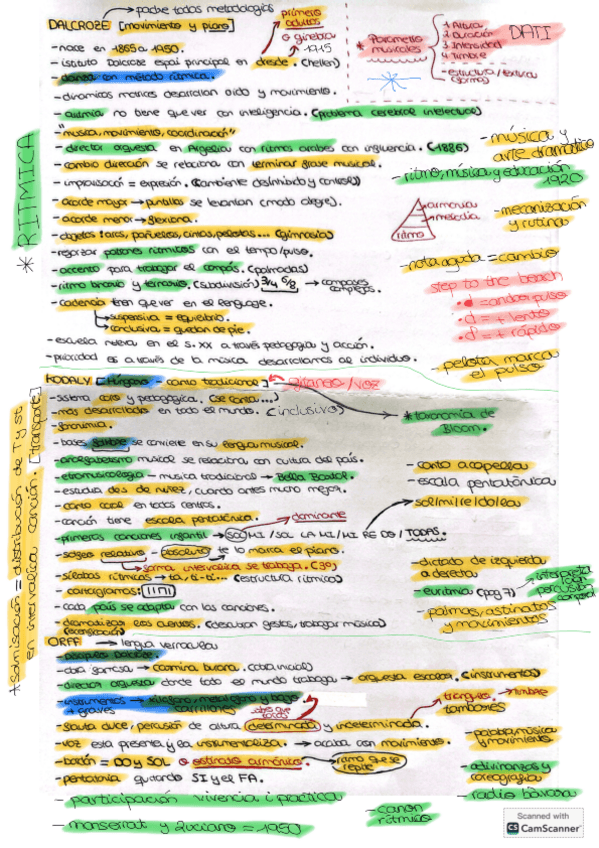 → padre todas metodologías
DALCROZE [movimiento y piano]
primero adultos
→ Ginebra 1915
- nace en 1865 a 1950.
- instituto Dalcroze espai principal en dresde. (hellen)
- danza con método rítmica.
- dinámicas motrices desarrollan oído y movimiento.
- arritmia no tiene que ver con inteligencia. (problema cerebral intelectual)
- "música, movimiento, coordinación"
- director orquesta en Argelia con ritmos árabes con influencia. (1886)
- cambio dirección se relaciona con terminar frase musical.
- improvisació = expresión. (ambiente desinhibido y control)
- acorde mayor → puntillas se levantan (modo alegre).
- acorde menor → flexiona.
- objetos: aros, pañuelos, cintas, pelotas... (gimnasia)
- reforzar patrones rítmicos con el tempo/pulso.
- accento para trabajar el compás. (palmadas)
- ritmo binario y ternario. (subdivisión) 3/4 6/8 → compases complejos.
- cadencia tien que ver en el lenguaje.
→ suspensiva = equilibrio.
→ conclusiva = quedan de pie.
- escuela nueva en el s. XX a través pedagogía y acción.
- prioridad es a través de la música desarrollamos al individuo.
* RÍTMICA
* Parámetros musicales
1. Altura
2. Duración
3. Intensidad
4. Timbre
- estructura/textura (forma)
DATI
- música y arte dramático
- ritmo, música y educación 1920
armonía
melodía
ritmo
- mecanización y rutina
- nota aguda = cambio
step to the beach
• ♩ = andar pulso
• = + lento
• = + rápido
- pelota marca el pulso
KODALY [Húngaro - canto tradicional] → Pitando/voz
- sistema coro y pedagógica. (se canta...)
- más desarrollados en todo el mundo. (inclusivo)
- fononimia.
- bases folklore se convierte en su lengua musical.
- analfabetismo musical se relaciona con cultura del país.
- etnomusicología - música tradicional → Bella Bartok.
- estudia des de niñez, cuando antes mucho mejor.
- canto coral en todos centros.
- canción tiene escala pentatónica.
→ dominante
- primeras canciones infantil → SOL MI / SOL LA MI / MI RE DO / TODAS.
- solfeo relativo - absoluto te lo marca el piano.
→ forma intervalica se trabaja. (3º)
- sílabas rítmicas → ta, ti-ti... (estructura rítmica)
- musicogramas:
- cada país se adapta con las canciones.
- dramatizar los cuentos. (descubran gestos, trabajar música)
* taxonomía de Bloom.
- canto a capella
- escala pentatónica
- sol/mi/re/do/la
- dictado de izquierda a derecha
- euritmia (pag 7)
- palmas, ostinatos y movimientos
* Solmisación = distribución de T y st en intervalica canción. [transporte]
ORFF → lengua vernacula
- discípulo Dalcroze.
- obra famosa → Carmina burana. (coda inicial)
- director orquesta donde todo el mundo trabaja → orquesta escolar. (instrumentos)
- instrumentos → xilófono, metalofono y bajo
+ graves
carrillones
- flauta dulce, percusión de altura determinada y indeterminada.
→ triangulo → timbre
tambores
- voz está presente y la instrumentaliza. → acaba con movimiento.
- bordón = DO y SOL o ostinato armónico → ritmo que se repite
- pentatonía quitando SI y el FA.
- palabra música y movimiento
- adivinanzas y coreografía
- radio bávara
- participación vivencia i pràctica
- monserrat y luciano = 1950
- canon rítmico
Scanned with
CS CamScanner